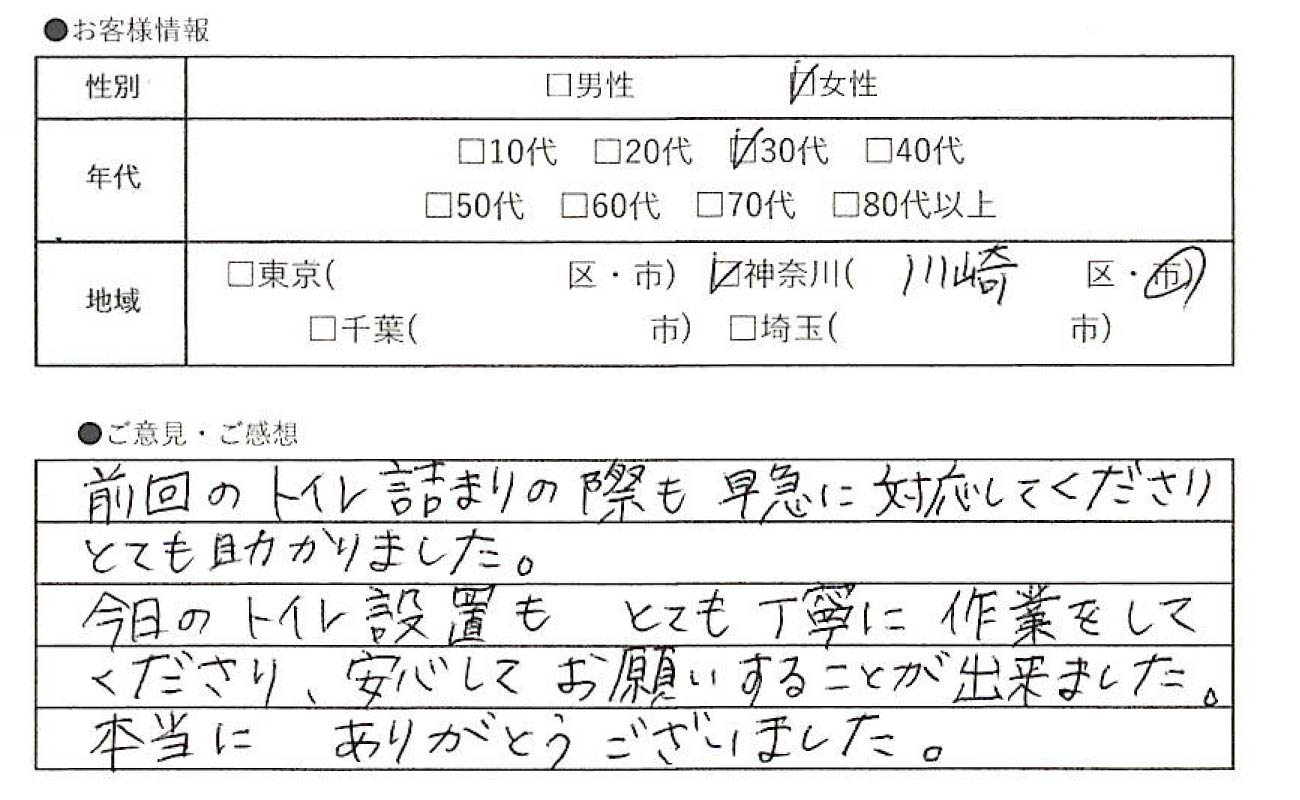 ●お客様情報
性別 □男性 ☑女性
年代 □10代 □20代 ☑30代 □40代
□50代 □60代 □70代 □80代以上
地域 □東京( 区・市) ☑神奈川( 川崎 区・市)
□千葉( 市) □埼玉( 市)
●ご意見・ご感想
前回のトイレ詰まりの際も早急に対応してくださり
とても助かりました。
今日のトイレ設置も とても丁寧に作業をして
くださり、安心してお願いすることが出来ました。
本当に ありがとうございました。